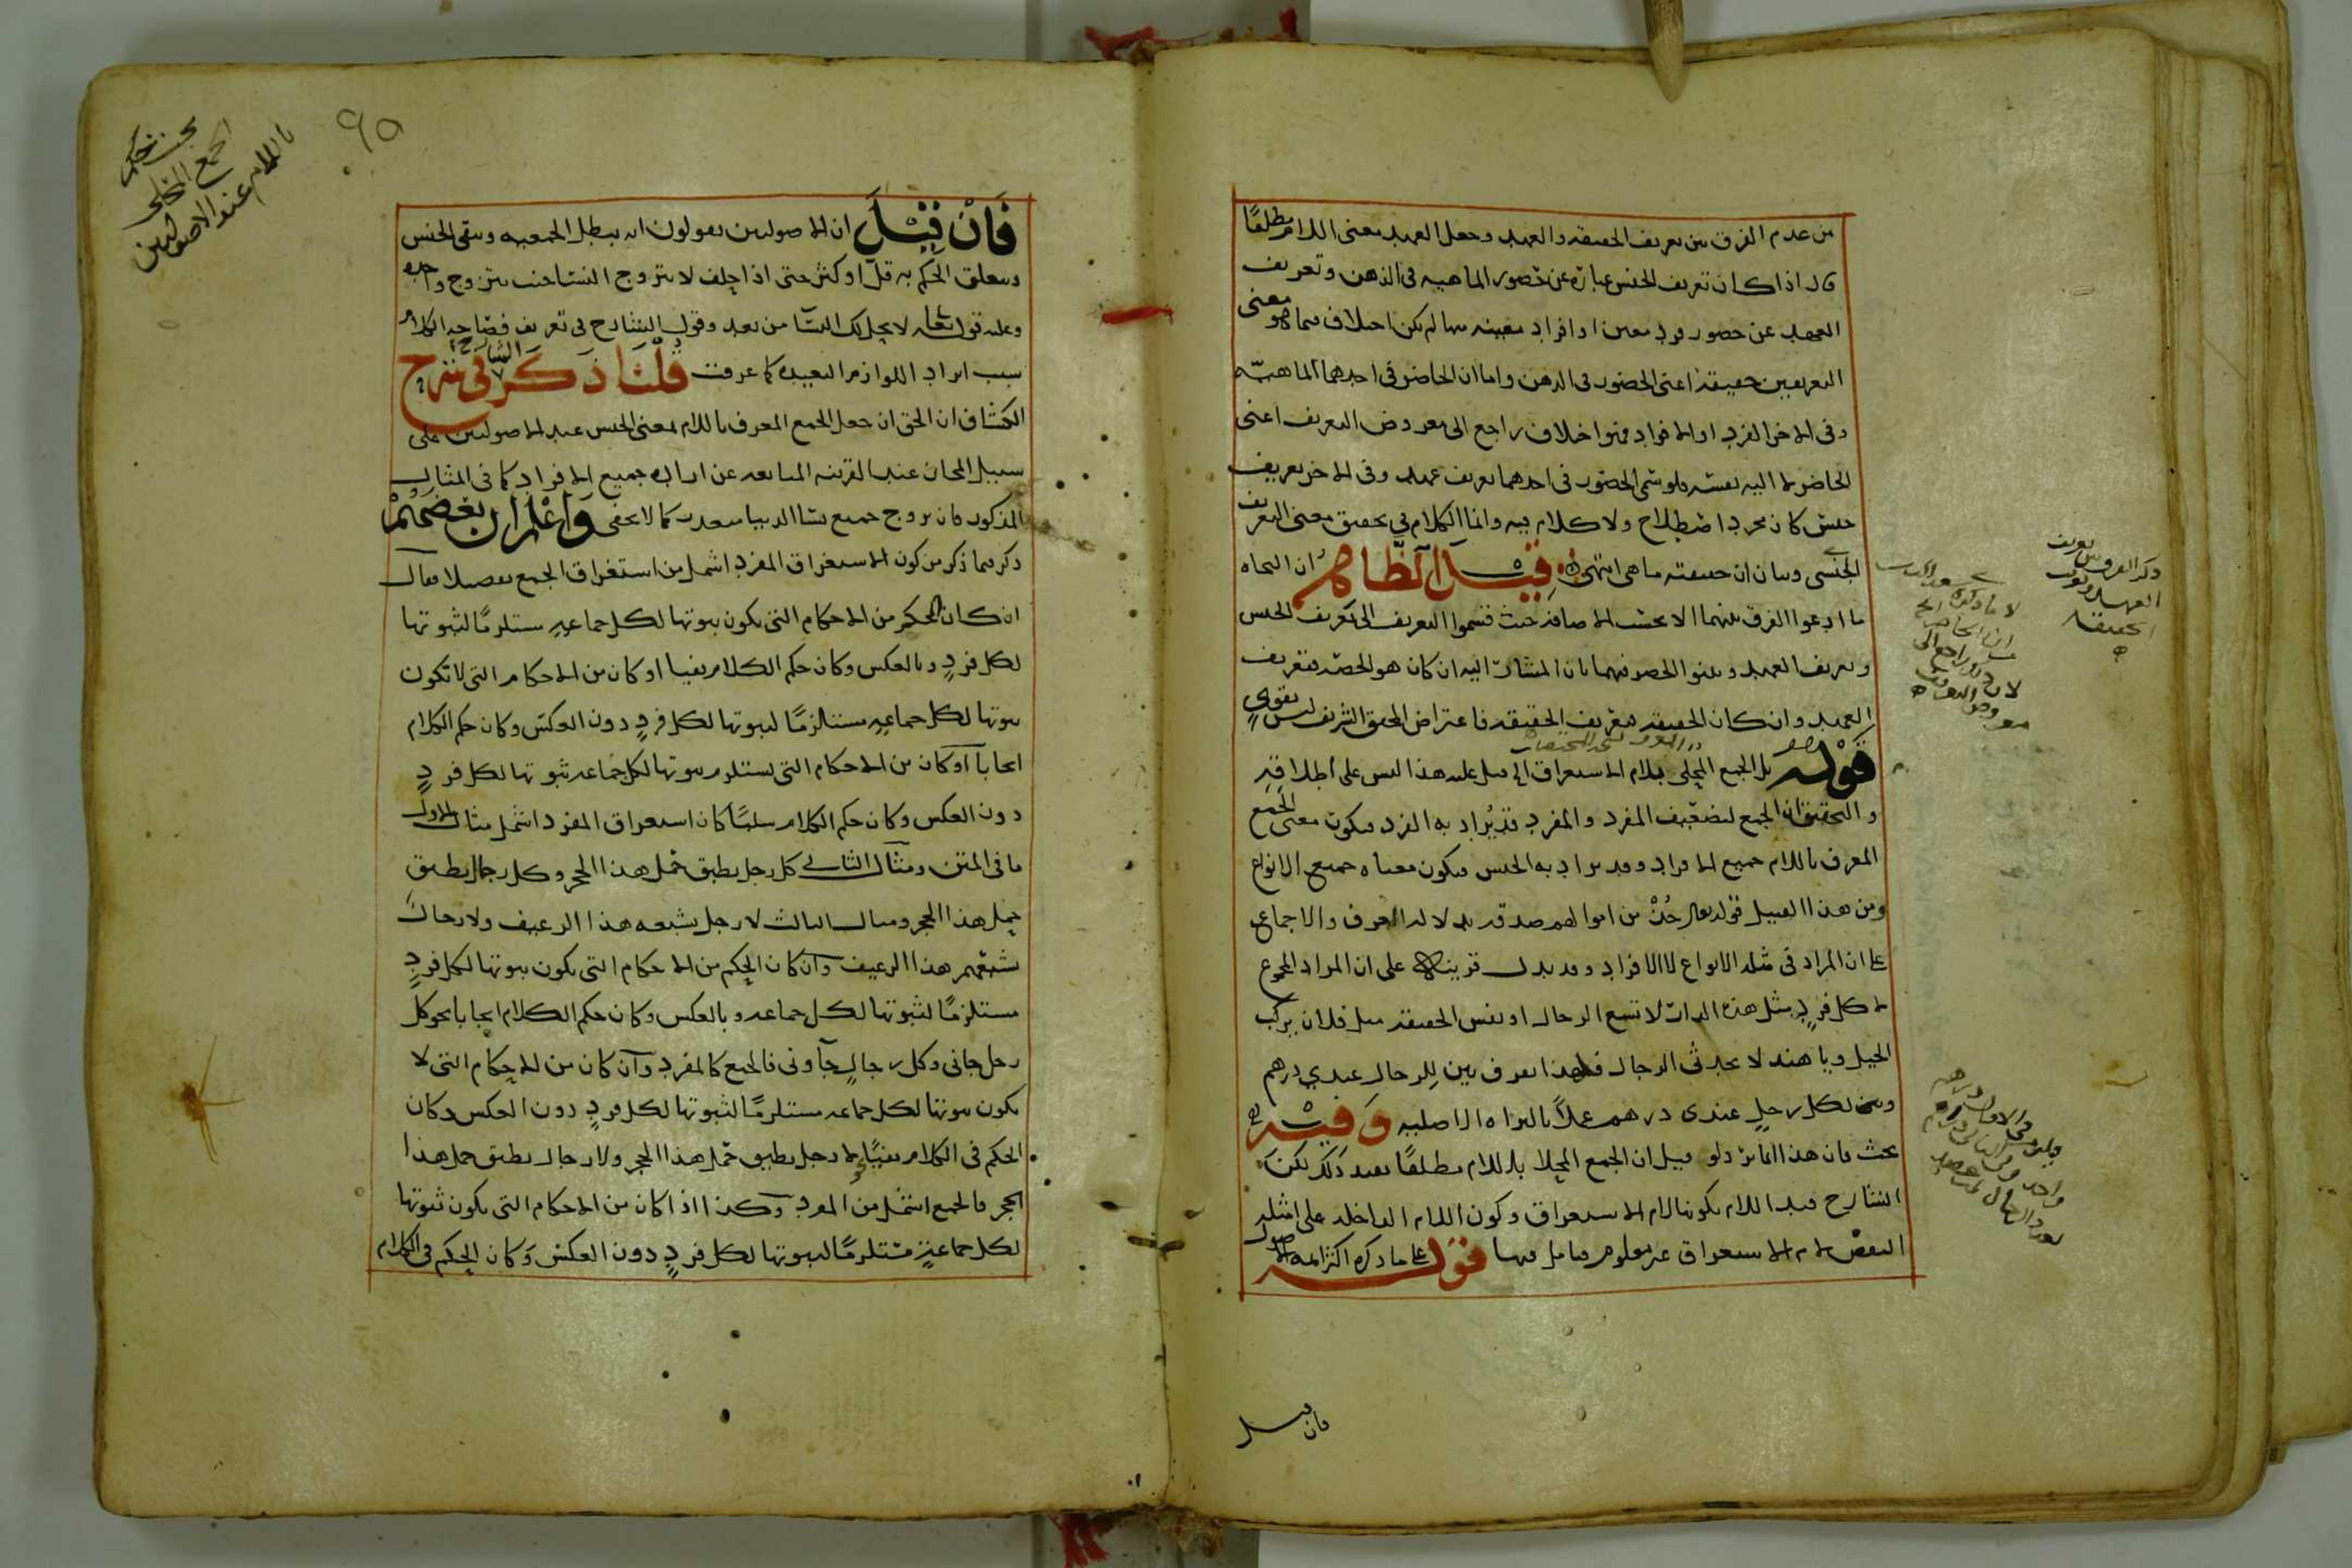 من عدم الفرق بين تعريف الحقيقه والعهد وجعل العهد معنى اللام مطلقًا
قال اذا كان تعريف الجنس عبارة عن حضور الماهيه في الذهن وتعريف
العهد عن حضور فرد معين او افراد معينه منها لم يكن اختلاف فيما هو معنى
التعريفين حقيقة اعنى الحضور في الذهن واما ان الحاضر في احدهما الماهيّه
وفي الاخر الفرد او الافراد فهو اختلاف راجع الى معروض التعريف اعنى
الحاضر لا اليه نفسه فلو سُمي الحضور في احدهما تعريف عهد وفي الاخر تعريف
جنس كان مجرد اصطلاح ولا كلام فيه وانما الكلام في تحقيق معنى التعريف
الجنسي وبيان ان حقيقته ما هي انتهى قيل الظاهر ان النحاه
ما ادعوا الفرق بينهما الا بحسب الاضافه حيث قسموا التعريف الى تعريف الجنس
وتعريف العهد وبينوا الحضور فيهما بان المشار اليه ان كان هو الحصّه فتعريف
العهد وان كان الحقيقه فتعريف الحقيقه فاعتراض المحقق الشريف ليس بقوي
قوله بل الجمع المحلى بلام الاستغراق الخ قيل عليه هذا ليس على اطلاقه
والتحقيق ان الجمع لتضعيف المفرد والمفرد قد يُراد به الفرد فيكون معنى الجمع
المعرف باللام جميع الافراد وقد يراد به الجنس فيكون معناه جميع الانواع
ومن هذا القبيل قوله تعالى خُذْ من اموالهم صدقة بدلالة العرف والاجماع
على ان المراد في مثله الانواع لا الافراد وقد يدل قرينة على ان المراد المجموع
لا كل فردٍ مثل هذه الدار لا تسع الرجال او نفس الحقيقه مثل فلان يركب
الخيل ويا هند لا تحدثى الرجال فلهذا تعرف بين للرجال عندي درهم
وبين لكل رجلٍ عندى درهم عملًا بالبراة الاصليه وفيه
بحث فان هذا انما يرد لو قيل ان الجمع المحلا باللام مطلقًا يفيد ذلك لكن
الشارح قيد اللام بكونها لام الاستغراق وكون اللام الداخله على امثله
النقض لام الاستغراق غير معلوم فتامل فيها قوله على ما ذكره اكثر ائمه الاصول
فان قيل
فَاِنْ قِيْلَ ان الاصوليين يقولون انه يبطل الجمعيه ويبقى الجنس
ويتعلق الحكم به قلّ او كثر حتى اذا حلف لا يتزوج النسا حنث بتزوج واحده
وعليه قوله تعالى لا يحل لك النسا من بعد وقول الشارح في تعريف فصاحه الكلام
بسبب ايراد اللوازم البعيده كما عرفت قُلْنَا ذكر الشارح في شرح
الكشاف ان الحق ان جعل الجمع المعرف باللام لمعنى الجنس عند الاصوليين على
سبيل المجاز عند القرينه المانعه عن اراده جميع الافراد كما في المثال
المذكور فان تزوج جميع نسا الدنيا متعذر كما لا يخفى وَاعْلم ان بعضهم
ذكر فيما ذكر من كون الاستغراق المفرد اشمل من استغراق الجمع تفصيلا فقال
ان كان الحكم من الاحكام التي يكون ثبوتها لكل جماعةٍ مستلزمًا لثبوتها
لكل فردٍ وبالعكس وكان حكم الكلام نفيا او كان من الاحكام التي لا تكون
ثبوتها لكل جماعةٍ مستلزمًا لثبوتها لكل فردٍ دون العكس وكان حكم الكلام
ايجابًا او كان من الاحكام التي يستلزم ثبوتها لكل جماعه ثبوتها لكل فردٍ
دون العكس وكان حكم الكلام سلبًا كان استغراق المفرد اشمل مثال الاول
ما في المتن ومثال الثاني كل رجل يطيق حمل هذا الحجر وكل رجال يطيق
حمل هذا الحجر ومثال الثالث لا رجل يشبعه هذا الرغيف ولا رجال
يشبعهم هذا الرغيف وان كان الحكم من الاحكام التي يكون ثبوتها لكل فردٍ
مستلزمًا لثبوتها لكل جماعه وبالعكس وكان حكم الكلام ايجابا نحو كل
رجل جانى وكل رجالٍ جآونى فالجمع كالمفرد وان كان من الاحكام التي لا
يكون ثبوتها لكل جماعه مستلزمًا لثبوتها لكل فردٍ دون العكس وكان
الحكم في الكلام نفيًا نحو لا رجل يطيق حمل هذا الحجر ولا رجال يطيق حمل هذا
الحجر فالجمع اشمل من المفرد وكذا اذا كان من الاحكام التي يكون ثبوتها
لكل جماعةٍ مستلزمًا لثبوتها لكل فردٍ دون العكس وكان الحكم في الكلام
٩٥
الجمع المحلى
باللام عند الاصوليين